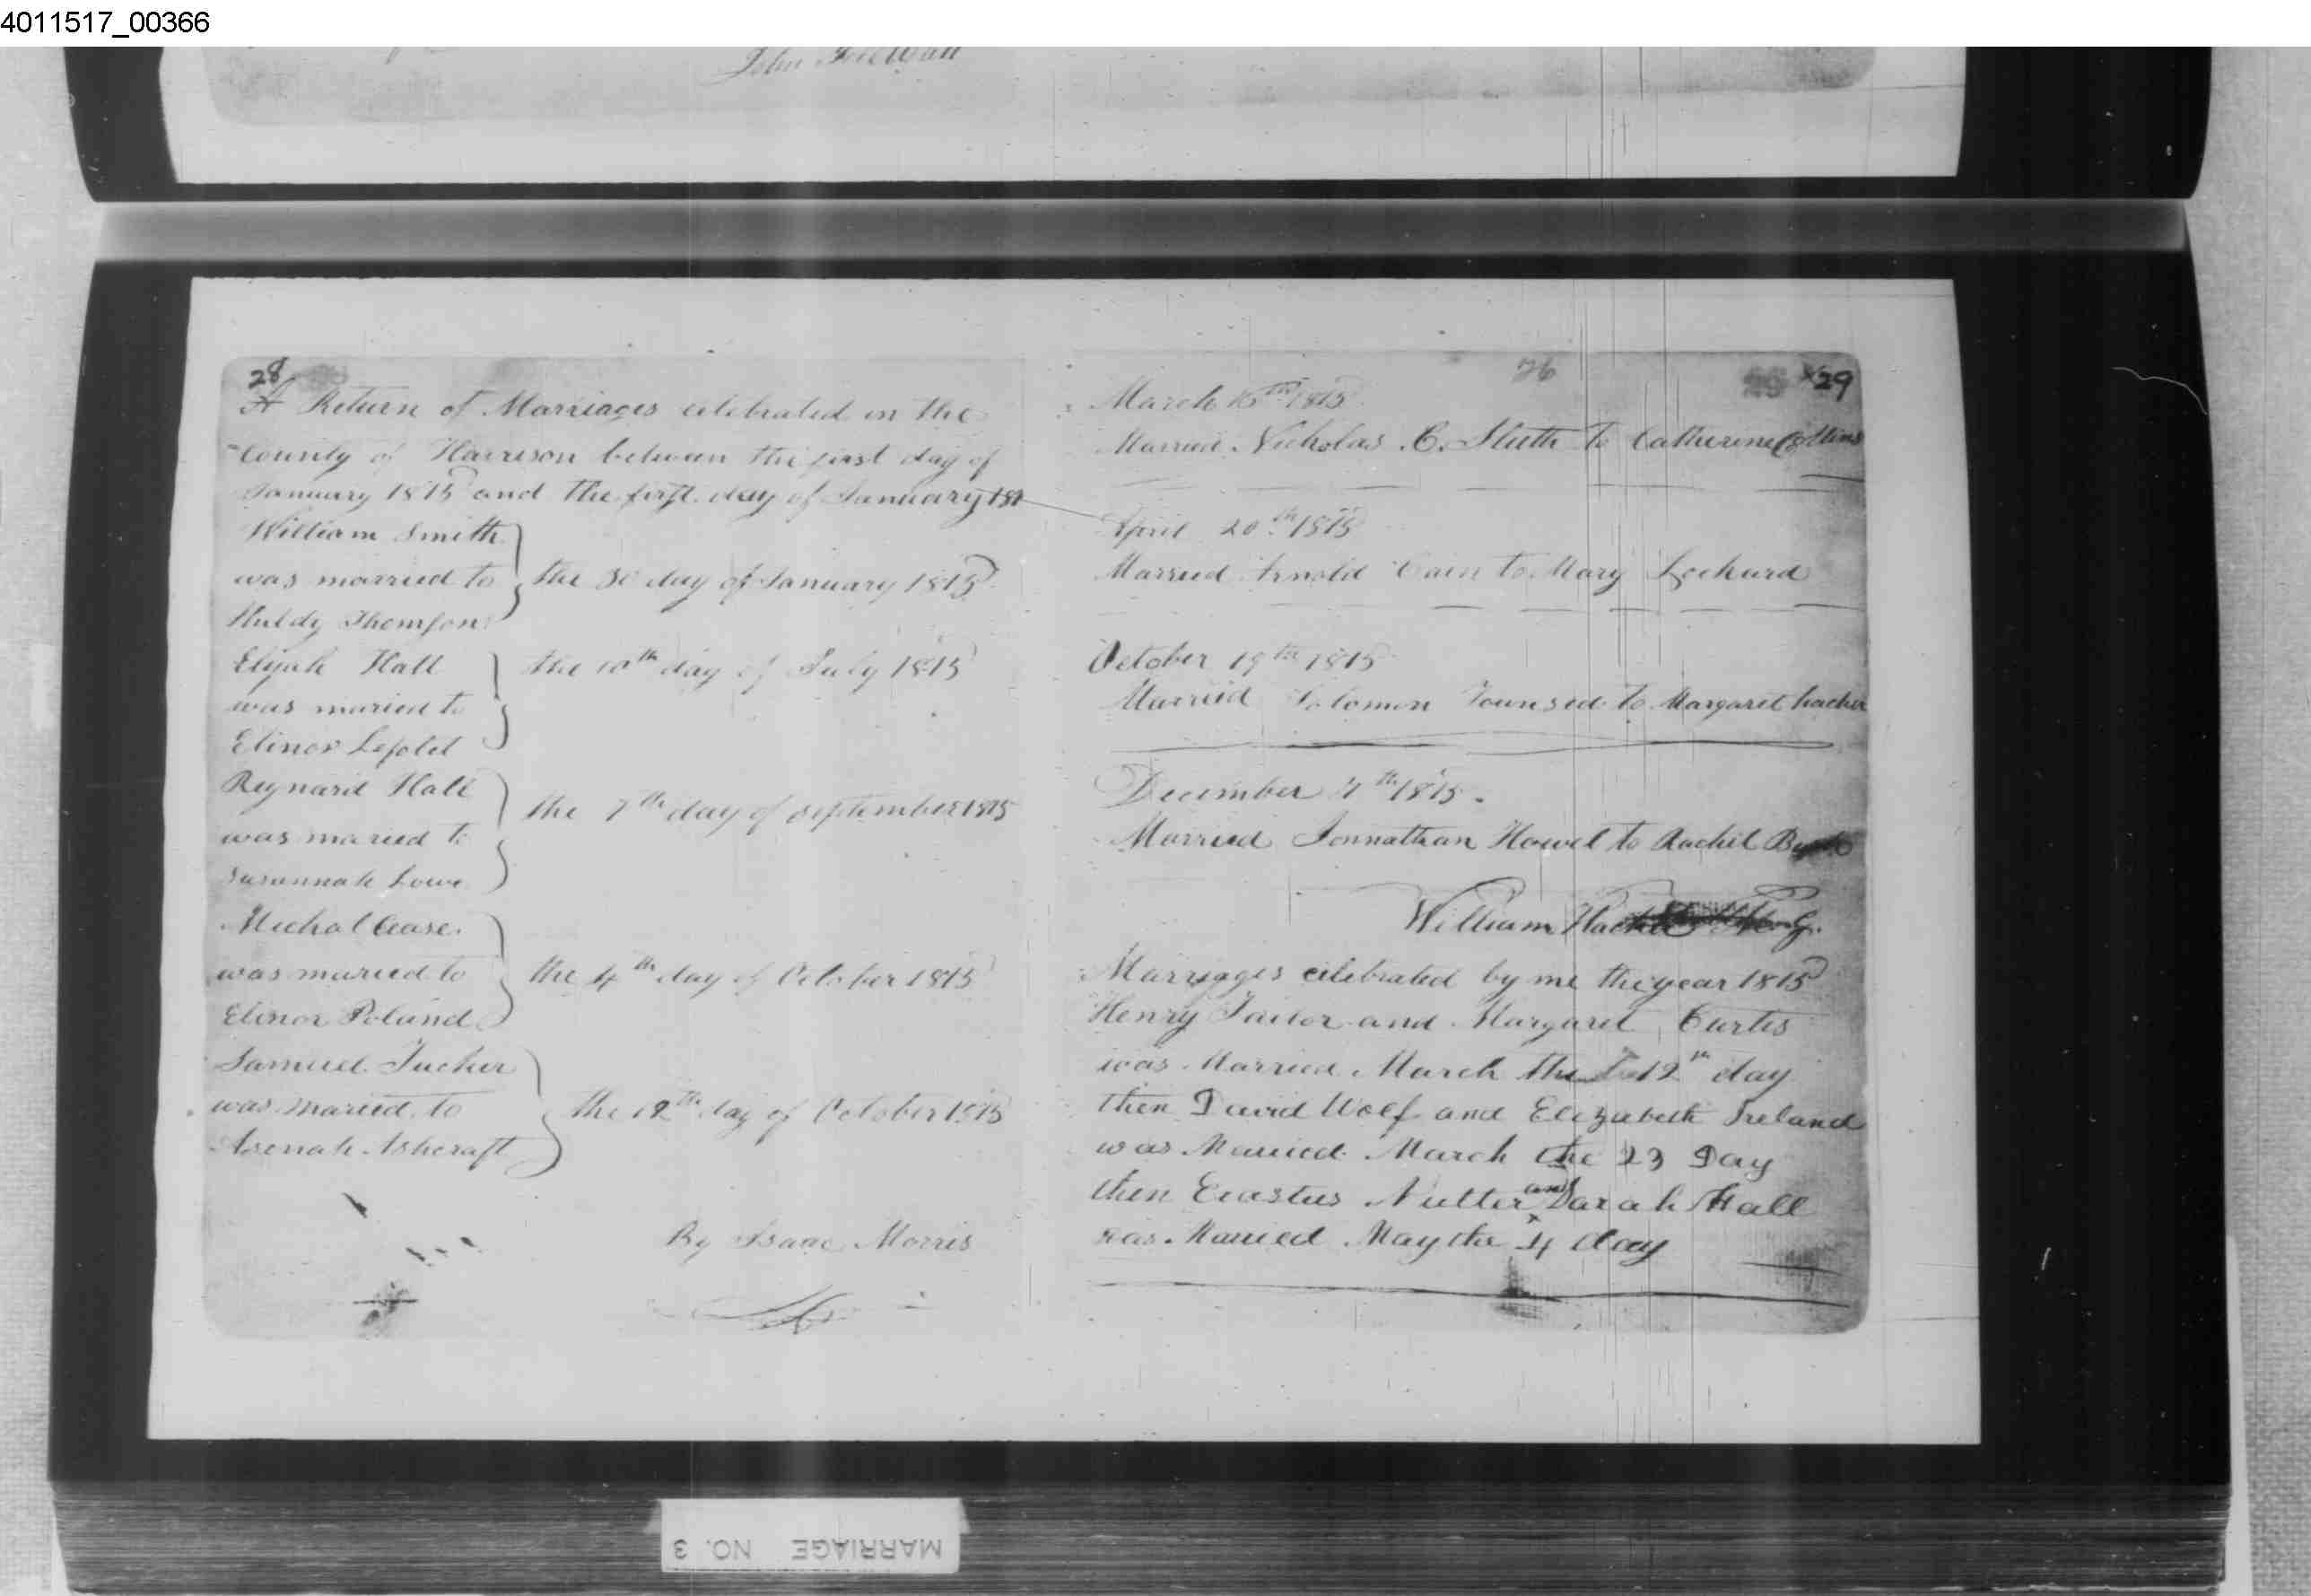 4011517_00366
28
A Return of Marriages celebrated in the
County of Harrison between the first day of
January 1815 and the first day of January 181
William Smith
was married to the 30 day of January 1815
Huldy Thomson
Elijah Hall the 10th day of July 1815
was maried to
Elinor Lefold
Reynard Hall
the 7th day of September 1815
was maried to
Susannah Lowe
Michal Cease
was maried to the 4th day of October 1815
Elinor Poland
Samuel Tucker
was maried to the 12th day of October 1815
Asenah Ashcraft
By Isaac Morris
26
29
March 15th 1815
Married Nicholas C. Sluth to Catherine Collins
April 20th 1815
Married Arnold Cain to Mary Lockard
October 19th 1815
Married Solomon Townsed to Margaret hacker
December 7th 1815.
Married Jonnathan Howel to Rachel
William Hacker
Marryages celebrated by me the year 1815
Henry Tailor and Margaret Curtis
was Married March the 12th day
then David Wolf and Elizabeth Ireland
was Married March the 23 Day
then Erastus Nutter and Sarah Hall
was Married May the 4 day
MARRIAGE NO. 3